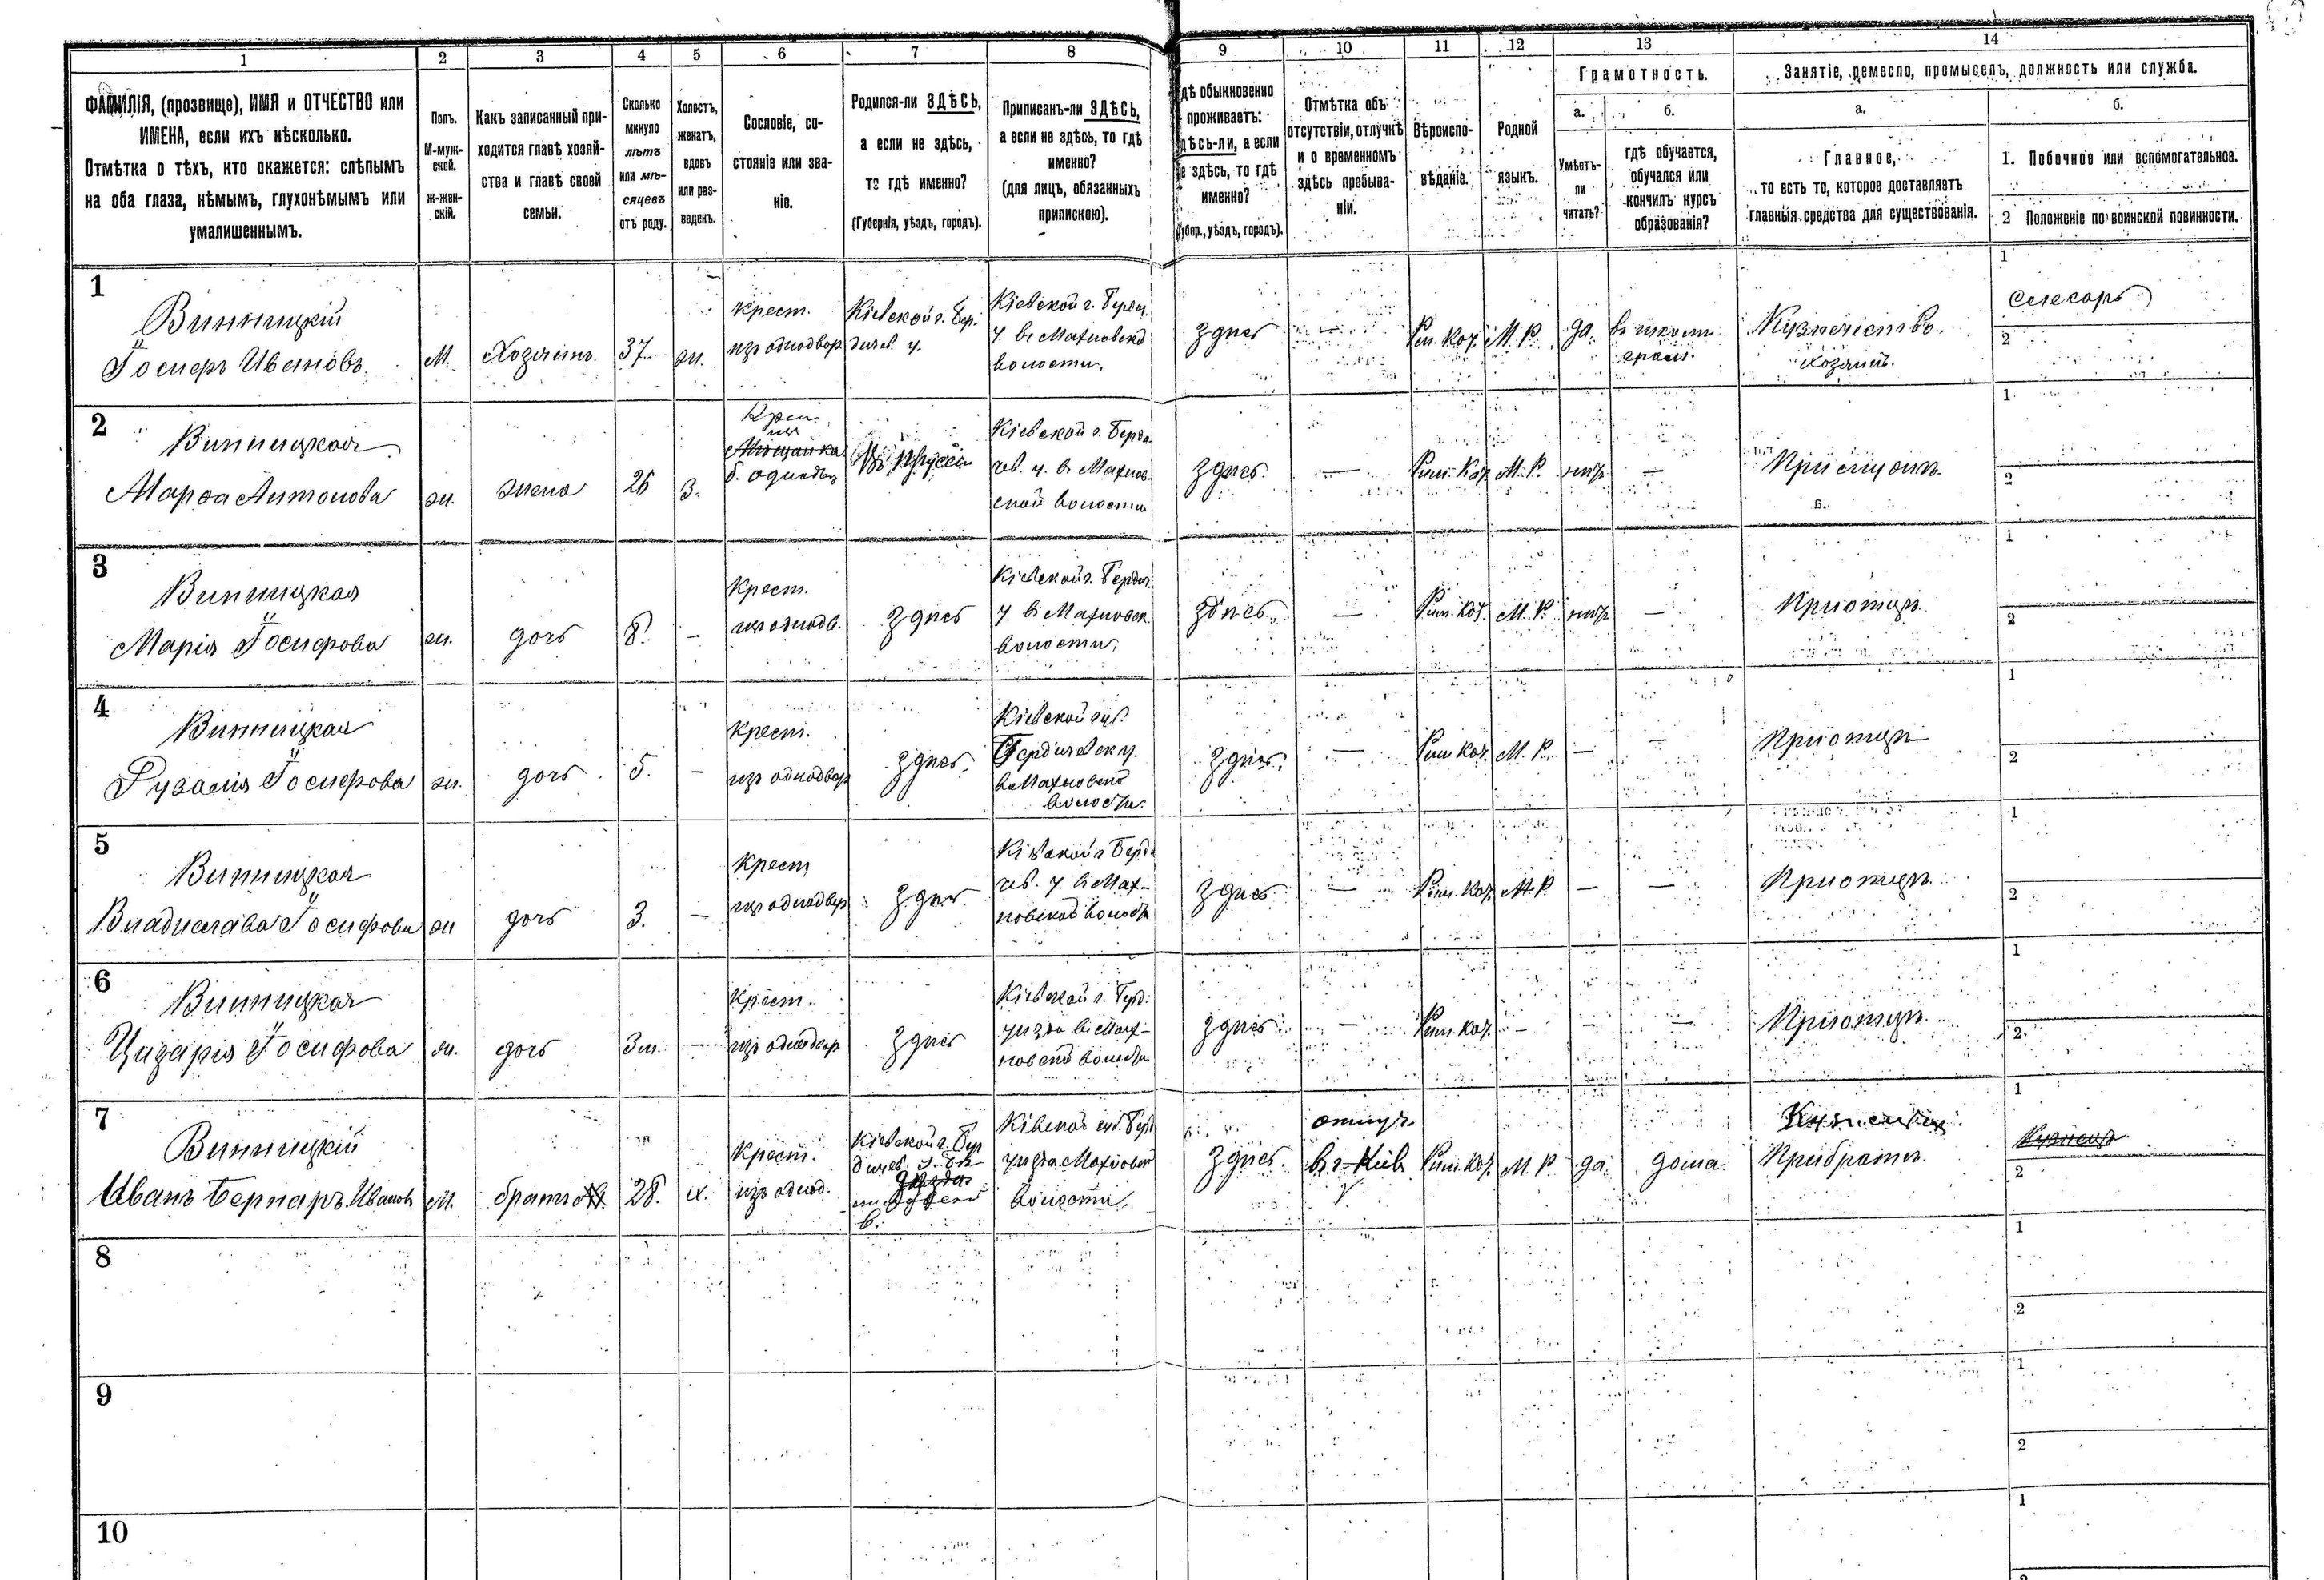 1 2 3 4 5 6 7 8 9 10 11 12 13 14
ФАМИЛІЯ, (прозвище), ИМЯ и ОТЧЕСТВО или
ИМЕНА, если ихъ нѣсколько.
Отмѣтка о тѣхъ, кто окажется: слѣпымъ
на оба глаза, нѣмымъ, глухонѣмымъ или
умалишеннымъ.
Полъ.
М-муж-
ской.
ж-жен-
скій.
Какъ записанный при-
ходится главѣ хозяй-
ства и главѣ своей
семьи.
Сколько
минуло
лѣтъ
или мѣ-
сяцевъ
отъ роду.
Холостъ,
женатъ,
вдовъ
или раз-
веденъ.
Сословіе, со-
стояніе или зва-
ніе.
Родился-ли ЗДѢСЬ,
а если не здѣсь,
то гдѣ именно?
(Губернія, уѣздъ, городъ).
Приписанъ-ли ЗДѢСЬ,
а если не здѣсь, то гдѣ
именно?
(для лицъ, обязанныхъ
припискою).
дѣ обыкновенно
проживаетъ:
дѣсь-ли, а если
не здѣсь, то гдѣ
именно?
Губер., уѣздъ, городъ).
Отмѣтка объ
отсутствіи, отлучкѣ
и о временномъ
здѣсь пребыва-
ніи.
Вѣроиспо-
вѣданіе.
Родной
языкъ.
Грамотность.
а.
Умѣетъ-
ли
читать?
б.
гдѣ обучается,
обучался или
кончилъ курсъ
образованія?
Занятіе, ремесло, промыселъ, должность или служба.
а.
Главное,
то есть то, которое доставляетъ
главныя средства для существованія.
б.
1. Побочное или вспомогательное.
2 Положеніе по воинской повинности.
1
Винницкій
Іосифъ Ивановъ
М.
Хозяинъ.
37
ж.
крест.
изъ однодвор
Кіевской г. Бер.
дичев. у.
Кіевской г. Бердич.
у. въ Махновской
волости.
здѣсь
—
Рим. Кат.
М. Р.
да.
въ школѣ
грам.
Кузнечество.
хозяинъ.
1
Слесарь
2
2
Винницкая
Марѳа Антонова
ж.
жена
26
З.
Крест.
изъ
Мѣщанка
б. однодвор
Кіевской г. Берди-
чев. у. въ Махнов-
ской волости
здѣсь.
—
Рим. Кат.
М. Р.
нѣтъ
—
При мужѣ
1
2
3
Винницкая
Марія Іосифова
ж.
дочь
8.
—
Крест.
изъ однодв.
здѣсь
Кіевской г. Бердич.
у. въ Махновск.
волости.
здѣсь.
—
Рим. Кат.
М. Р.
нѣтъ
—
При отцѣ
1
2
4
Винницкая
Рузалія Іосифова
ж.
дочь
5.
—
Крест.
изъ однодвор
здѣсь.
Кіевской губ.
Бердичевск у.
въ Махновской
волости.
здѣсь.
—
Рим. Кат.
М. Р.
—
—
При отцѣ
1
2
5
Винницкая
Владислава Іосифова
ж
дочь
3.
—
Крест
изъ однодвор
здѣсь
Кіевской г Берди
чев. у. въ Мах-
новской волости
здѣсь
—
Рим. Кат.
М. Р.
—
—
При отцѣ
1
2
6
Винницкая
Цизарія Іосифова
ж.
дочь
3 м.
—
Крест.
изъ однодвор
здѣсь
Кіевской г. Берд.
уѣзда въ Мах-
новской волости
здѣсь
—
Рим. Кат.
—
—
—
При отцѣ
1
2
7
Винницкій
Иванъ Бернаръ Ивановъ
М.
братъ
28.
х.
Крест.
изъ однод.
Кіевской г. Бер
дичев. у.
Кіевской губ. Берд
уѣзда Махновской
волости.
здѣсь.
отлуч.
въ г. Кіев
Рим. Кат.
М. Р.
да.
дома.
При братѣ.
1
Кузнецъ
2
8
1
2
9
1
2
10
1